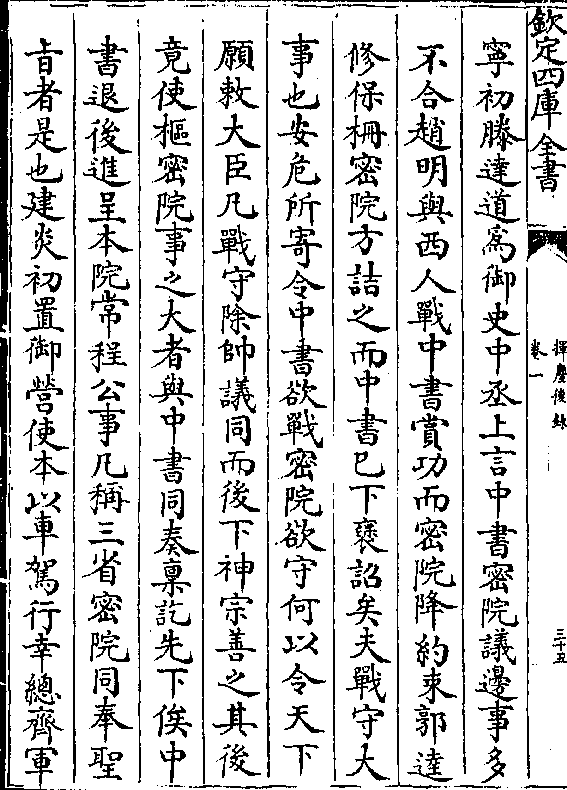 欽定四庫全書
揮麈後錄
卷一
三十五
寧初滕達道爲御史中丞上言中書密院議邊事多
不合趙明與西人戰中書賞功而密院降約束郭逵
修保柵密院方詰之而中書已下襃詔矣夫戰守大
事也安危所寄令中書欲戰密院欲守何以令天下
願敕大臣凡戰守除帥議同而後下神宗善之其後
竟使樞密院事之大者與中書同奏禀訖先下俟中
書退後進呈本院常程公事凡稱三省密院同奉聖
㫖者是也建炎初置御營使本以車駕行幸總齊軍